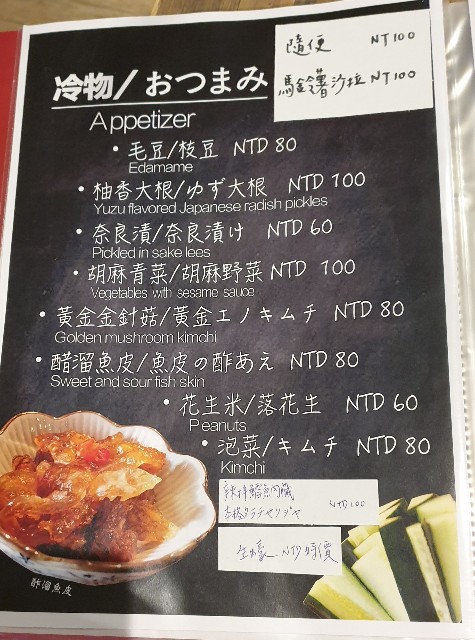 隨便 NT100
馬鈴薯沙拉 NT100
冷物/おつまみ
Appetizer
• 毛豆/枝豆 NTD 80
Edamame
• 柚香大根/ゆず大根 NTD 100
Yuzu flavored Japanese radish pickles
• 奈良漬/奈良漬け NTD 60
Pickled in sake lees
• 胡麻青菜/胡麻野菜 NTD 100
Vegetables with sesame sauce
• 黃金金針菇/黃金エノキムチ NTD 80
Golden mushroom kimchi
• 醋溜魚皮/魚皮の酢あえ NTD 80
Sweet and sour fish skin
• 花生米/落花生 NTD 60
Peanuts
• 泡菜/キムチ NTD 80
Kimchi
NTD100
生蠔 NTD時價
酢溜魚皮